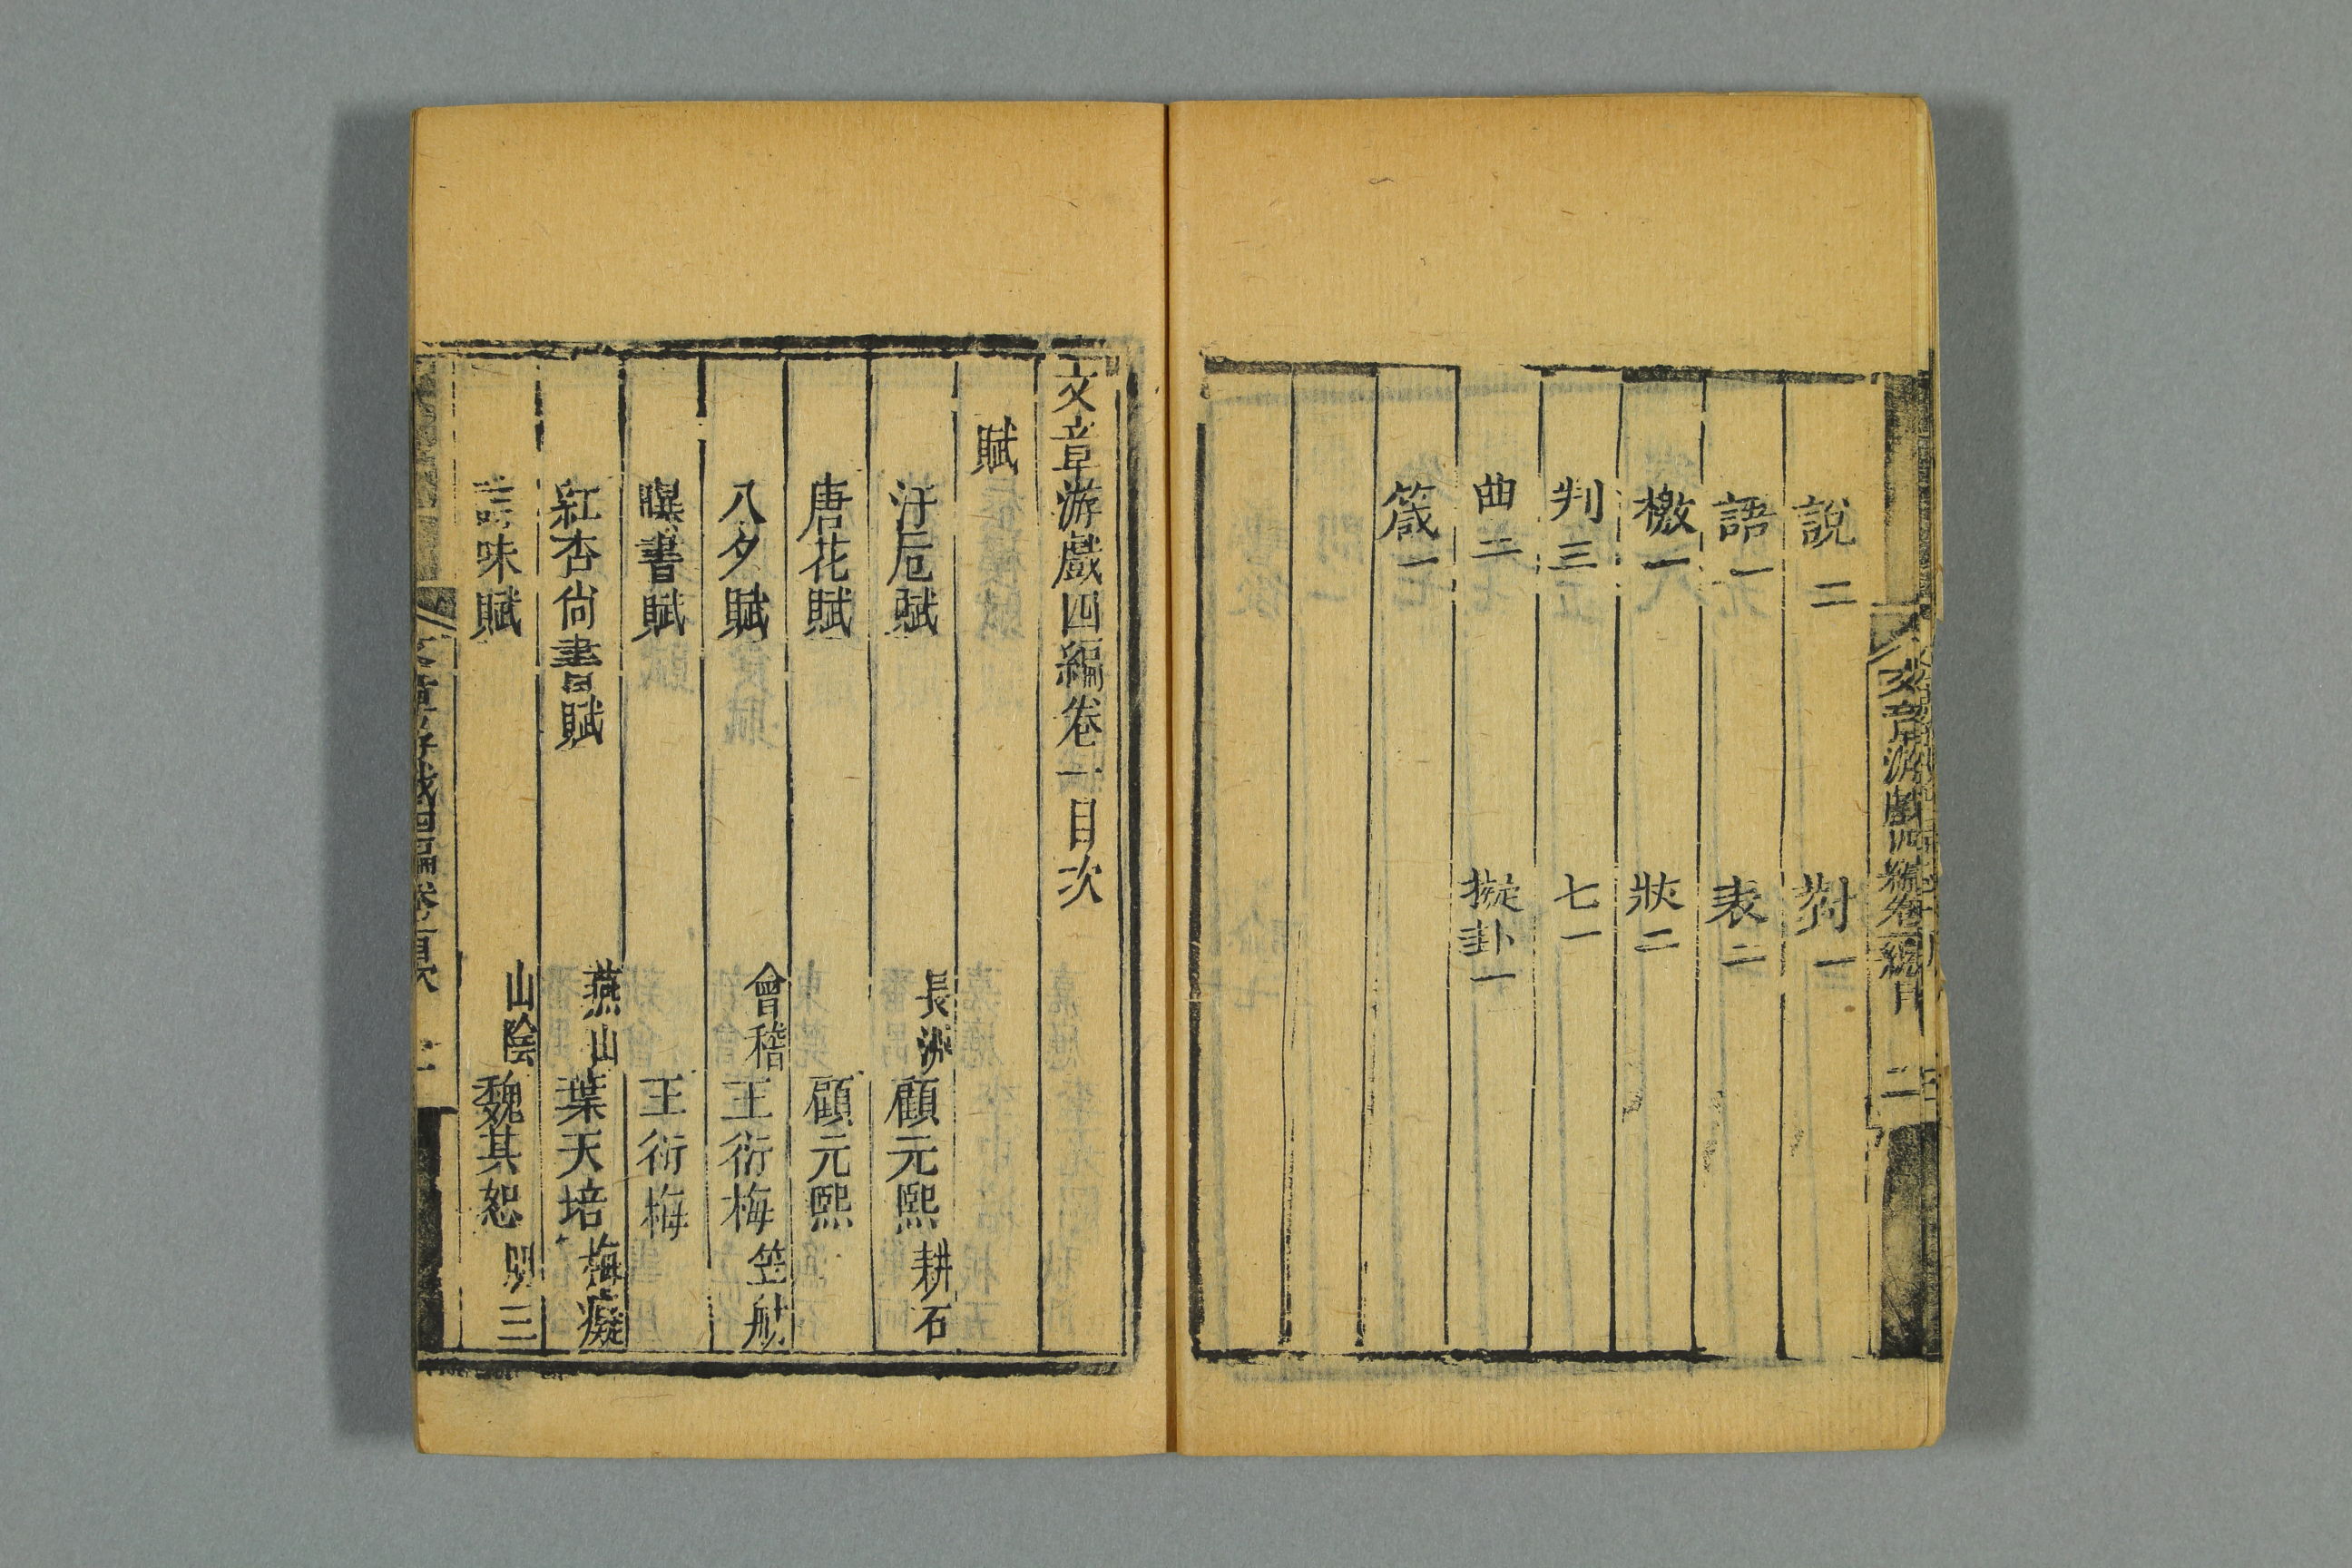 文章游戲四編卷總目 二
說二 對一
語一 表二
檄一 狀二
判三 七一
曲二 擬卦一
箴一
文章游戲四編卷一目次
賦
汙卮賦 長洲 顧元熙 耕石
唐花賦 顧元熙
八夕賦 會稽 王衍梅 笠舫
曝書賦 王衍梅
紅杏尙書賦 燕山 葉天培 梅癡
味賦 山陰 魏其恕 三
文章游戲四編卷一目次 一